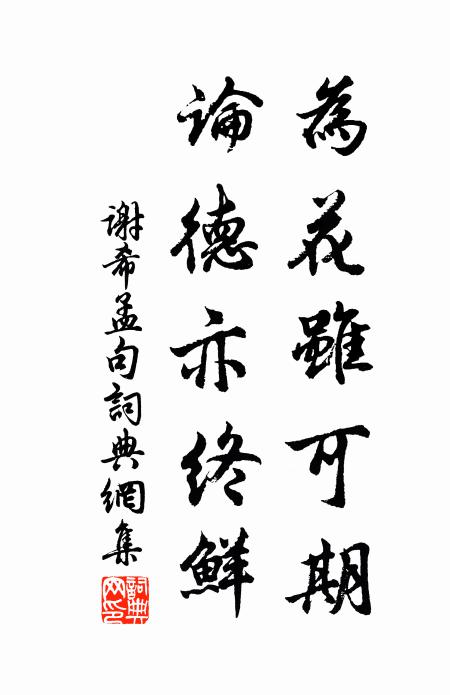 為花雖可期
論德亦終鮮
谢希孟句詞典網集
詞典網印